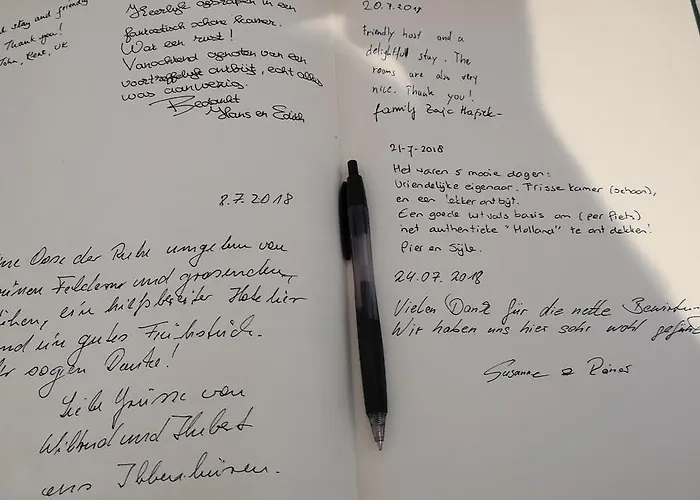 stay and friendly
Thank you!
John, Kent, UK
Heerlijk geslapen in een
fantastisch schone kamer.
Wat een rust!
Vanochtend genoten van een
voortreffelijk ontbijt, echt alles
was aanwezig.
Bedankt
Hans en Edith
8.7.2018
ne Oase der Ruhe umgeben von
grünen Feldern und grasenden
ühen, ein hilfsbereiter Hotelier
nd ein gutes Frühstück.
ir sagen Danke!
Liebe Grüsse von
Wiltrud und Hubert
aus Ibbenbüren.
20.7.2018
Friendly host and a
delightful stay. The
rooms are also very
nice. Thank you!
family Zajc Hafsek-
21-7-2018
Het waren 5 mooie dagen:
Vriendelijke eigenaar. Frisse kamer (schoon),
en een lekker ontbijt.
Een goede uitvals basis om (per fiets)
het authentieke "Holland" te ontdekken!
Pier en Sijke.
24.07.2018
Vielen Dank für die nette Bewirtun
Wir haben uns hier sehr wohl gefühlt
Susanne & Rainer